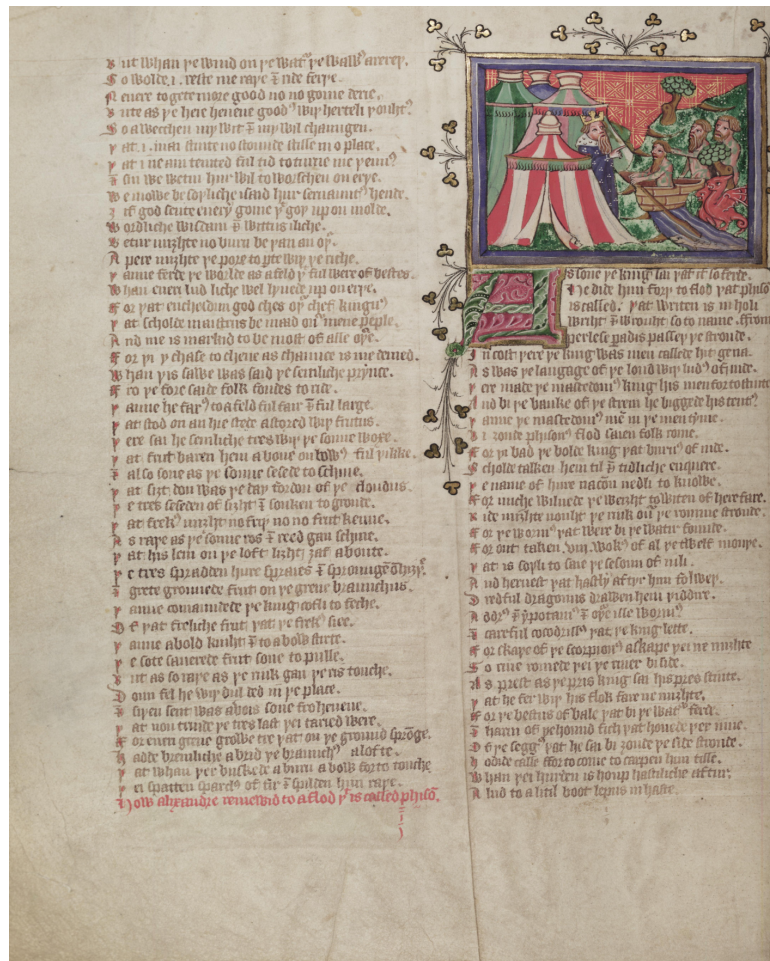 But whan þe wind on þe watur þe wawus arereþ.
So wolde .i. reste me raþe & ride ferþe.
Neuere to gete more good no no gome derie.
Bute as ȝe here heuene godus wiþ herteli þouhtus
So awecchen my wit & my wil chaungen.
Þat .i. mai stinte no stounde stille in o place.
Þat i ne am temted ful tid to turne me þennus
& sin we wetin hur wil to worschen on erþe.
We mowe be soþliche isaid hur seruauntus hende.
Ȝif god sente euery gome þat goþ upon molde.
Wordliche wisdam & wittus iliche.
Betur miȝhte no burn be þan an oþur
Apere miȝhte þe pore to parte wiþ þe riche.
Þanne ferde þe worlde as a feld þat ful were of bestes.
Whan eueri lud liche wel lyuede upon erþe.
For þat enchesoun god ches oþur chef kingus
Þat scholde maistrus be maad ouur mene peple.
And me is markid to be most of alle oþur
For þi y chase to cheue as chaunce is me demed.
Whan þis sawe was said þe semliche prynce.
Fro þe fore saide folk fondes to ride.
Þanne he farus to a feld ful fair & ful large.
Þat stod on an hie stede astored wiþ frutus.
Þere sai he semliche tres wiþ þe sonne woxe.
Þat frut baren hem aboue on bowus ful þikke.
& also sone as þe sonne sesede to schine.
Þat siȝt don was þe day tordon of þe cloudus.
Þe tres seseden of siȝht & sonken to gronde.
Þat frek miȝhte no ferþ no no frut kenne.
As raþe as þe sonne ros & reed gan schine.
Þat his lem on þe loft liȝht ȝaf aboute.
Þe tres spradden hure spraies & sprongen on hiȝþe
& grete growede frut on þe grene braunchus.
Þanne comaundede þe king cofli to feche.
Of þat freliche frut þat þe frek seie.
Þanne a bold kniht & to a bow sterte.
Þe sote sauerede frut sone to pulle.
But as so raþe as þe rink gan þe ris touche.
Doun fel he wiþ dul ded in þe place.
& siþen sent was a vois sone fro heuene.
Þat non tende þe tres last þei taried were.
For euen grene growe tre þat on þe ground spronge.
Hadde bremliche a brid þe braunchus alofte.
Þat whan þer buskede a burn a bow for to touche
Þei spatten sparclus of fir & spilden him raþe.
How alixandre remewid to a flod þat is called phison.
As sone þe king sai þat it so ferde.
He dide him forþ to flod þat phison
is called. þat writen is in holi
wriht & wrouht so to name. from
perlese paradis passeþ þe stronde.
In cost þere þe king was men callede hit gena.
As was þe langage of þe lond wiþ ludus of inde.
Þere made þe masedonius king his men for to stinte
And bi þe banke of þe strem he biggede his tentus
Þanne þe masedonius men in þe men tyme.
Biȝonde phisonus flod saien folk rome.
For þi bad þe bolde king þat burnus of inde.
Scholde talken hem til & tidliche enquere.
Þe name of hure nacion nedli to knowe.
For miche wilnede þe weiȝht to witen of here fare.
Ride miȝhte nouht þe rink ouur þe romme stronde.
For þe wormus þat were bi þe watur founde.
For out taken .viii. wokus of al þe twelf monþe.
Þat is soþli to saie þe sesoun of iuli.
And heruest þat hastly aftyr him folweþ.
Dredful dragonus drawen hem þiddire.
Addrus & ypotamus & oþure ille wormus
& careful cocodrillus þat þe king lette.
For skaþe of þe scorpionus askape þei ne miȝhte
So rive romede þei þe river biside.
As prest as þe pris king sai his pres stinte.
Þat he fer wiþ his flok fare ne miȝhte.
For þe bestus of bale þat bi þe watur ferde.
& harm of þe hound fich þat houede þer inne.
Of þe seggus þat he sai bi ȝonde þe side stronde.
He dide calle for to come to carpen him tille.
Whan þei hurden is houp hastiliche aftur.
A lud to a litil boot lepus in haste.